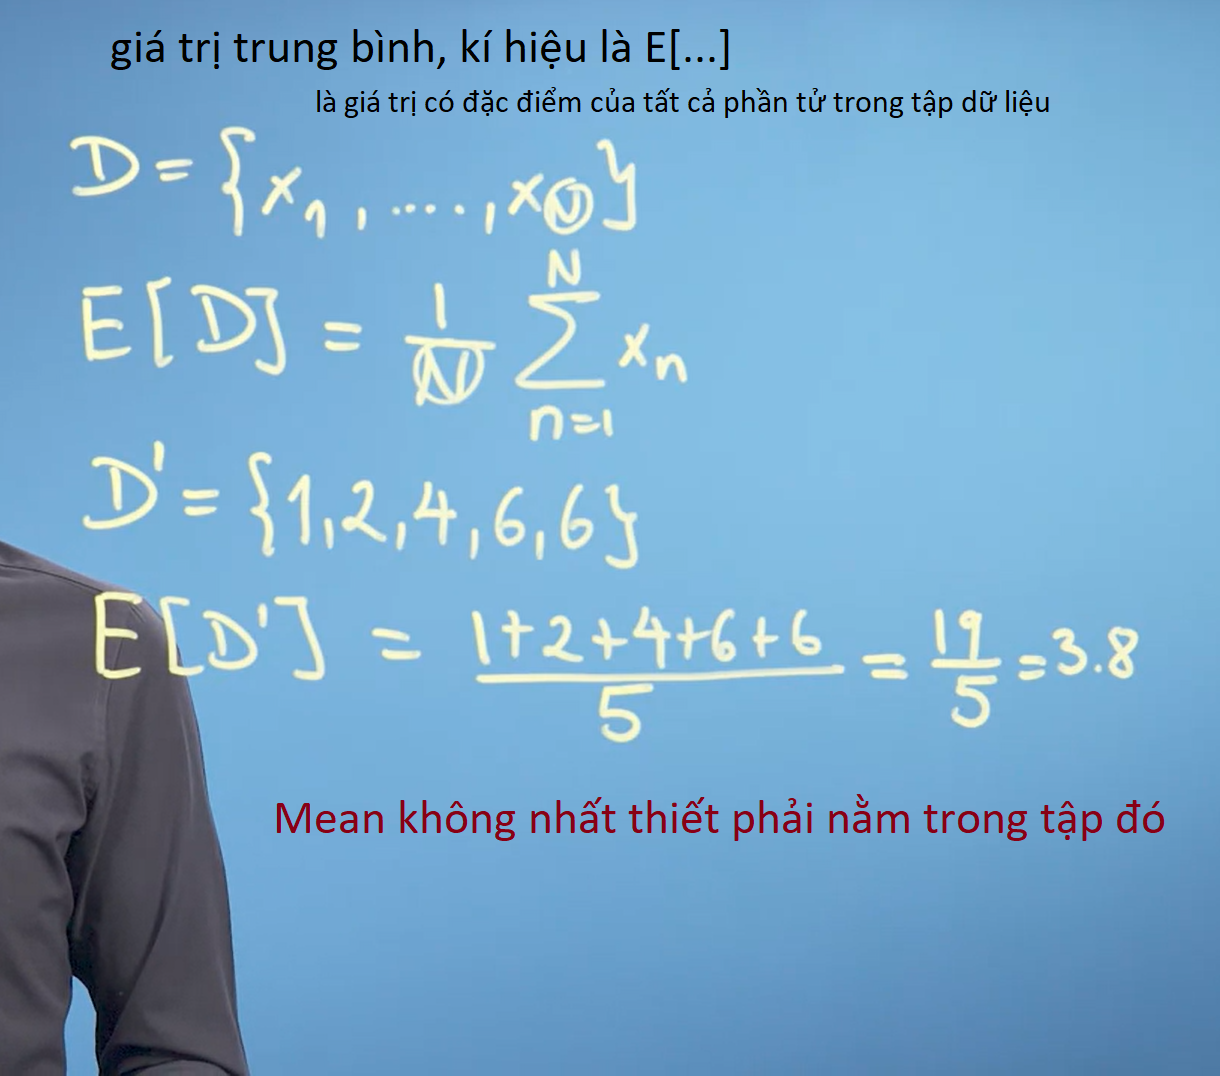 giá trị trung bình, kí hiệu là E[...]
là giá trị có đặc điểm của tất cả phần tử trong tập dữ liệu
D = {x₁, ...., x_N}
E[D] = 1/N ∑_{n=1}^{N} xₙ
D' = {1,2,4,6,6}
E[D'] = (1+2+4+6+6)/5 = 19/5 = 3.8
Mean không nhất thiết phải nằm trong tập đó